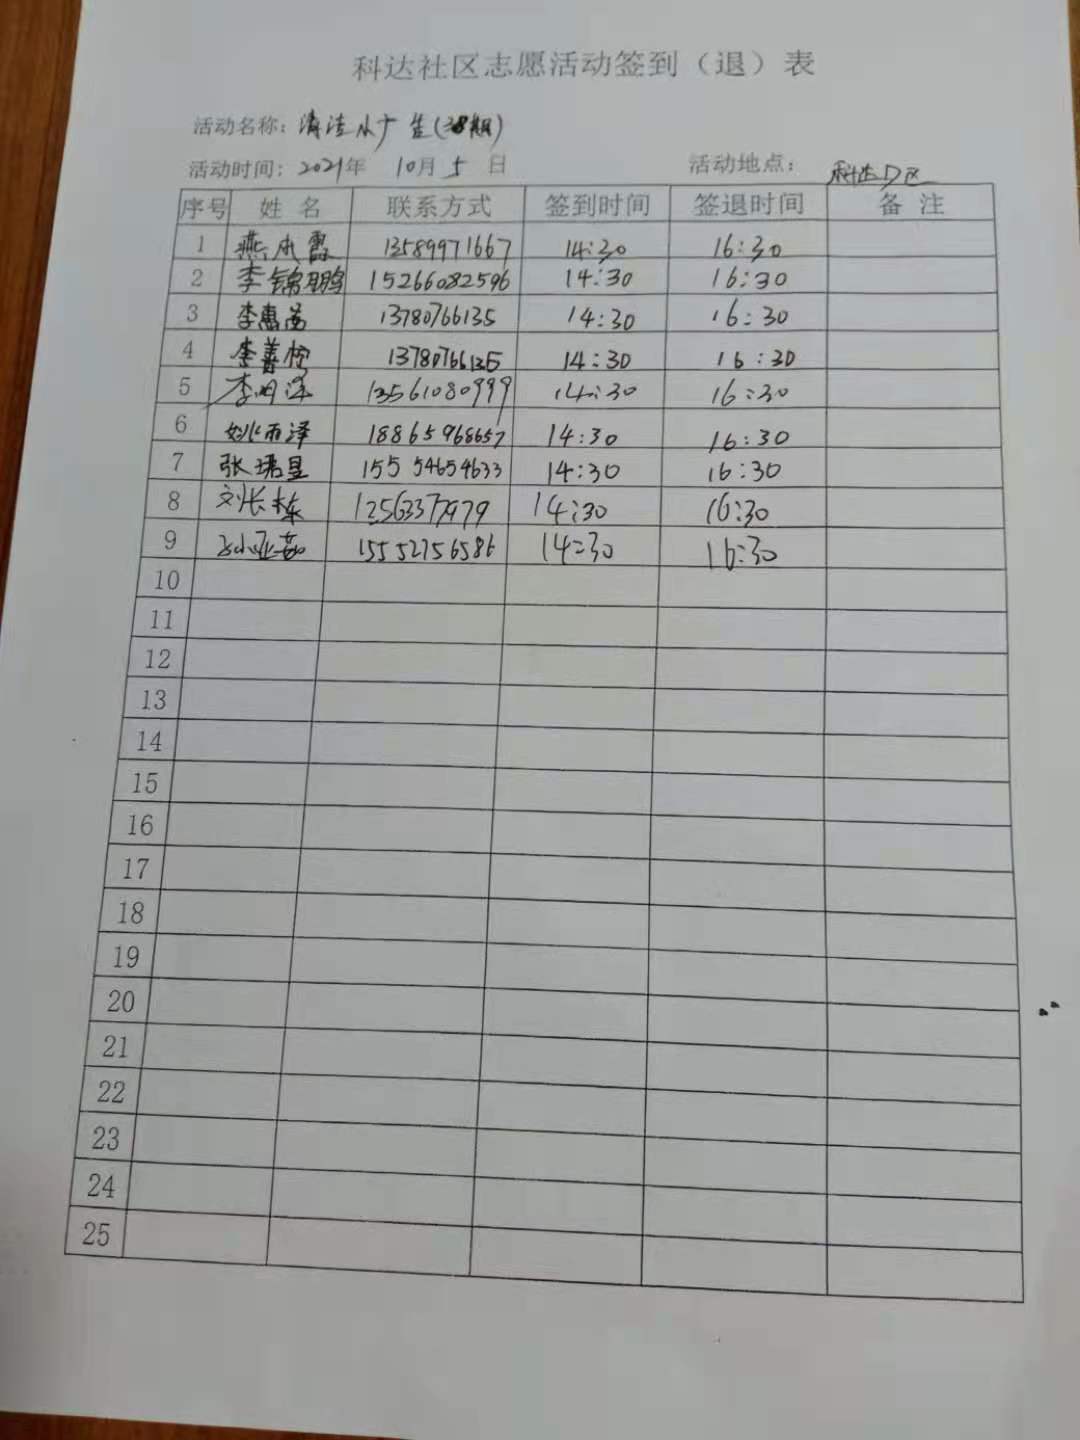 科达社区志愿活动签到（退）表
活动名称：清洁 (38期)
活动时间：2021年 10月 5 日 活动地点：科达D区
序号 姓 名 联系方式 签到时间 签退时间 备 注
1 燕 霞 13589971667 14:30 16:30
2 李锦鹏 15266082596 14:30 16:30
3 李惠 13780766135 14:30 16:30
4 李 13780766135 14:30 16:30
5 李 13561080999 14:30 16:30
6 姚雨泽 18865968657 14:30 16:30
7 张珺昱 15554654633 14:30 16:30
8 刘长栋 14:30 16:30
9 15552756586 14:30 16:30
10
11
12
13
14
15
16
17
18
19
20
21
22
23
24
25